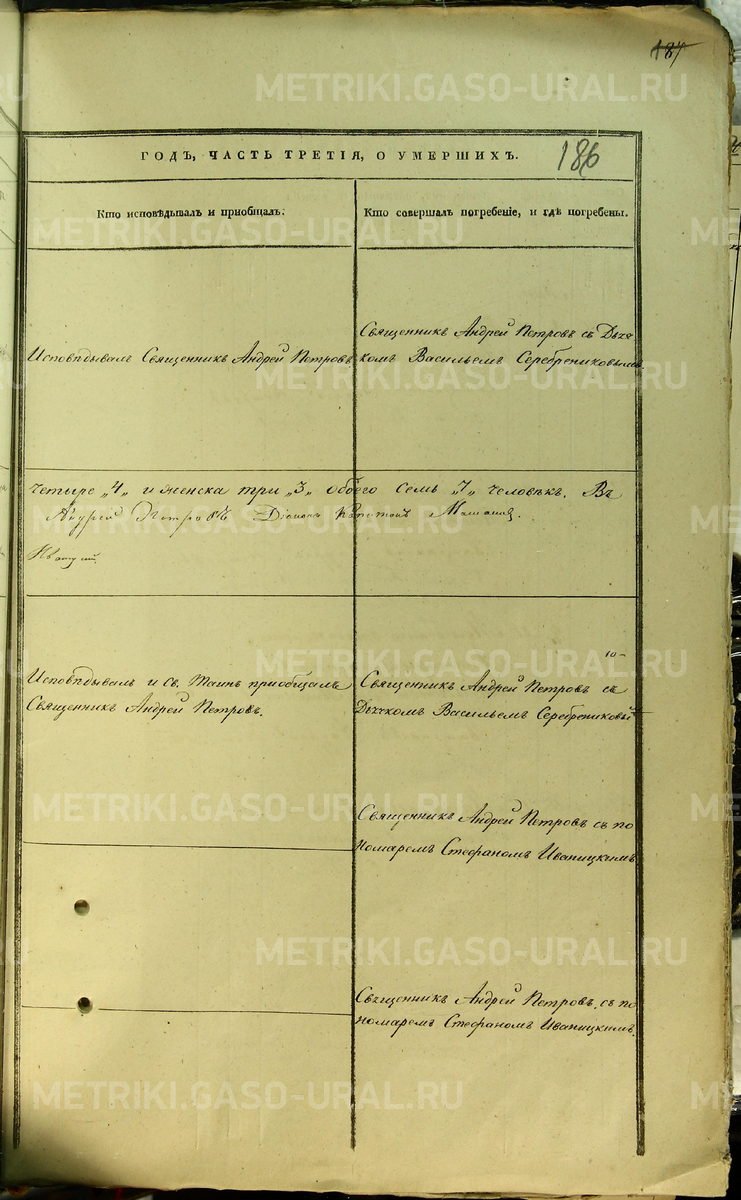 187
ГОДЪ, ЧАСТЬ ТРЕТІЯ, О УМЕРШИХЪ.
186
Кто исповѣдывалъ и приобщалъ.
Кто совершалъ погребеніе, и гдѣ погребены.
Исповѣдывалъ Священникъ Андрей Петровъ
Священникъ Андрей Петровъ съ Дьяч
комъ Васильемъ Серебрениковымъ
четыре „4„ и женска три „3„ обоего семь „7„ человѣкъ. Въ
Андрей Петровъ Діаконъ
Исповѣдывалъ и Св. Таинъ приобщалъ
Священникъ Андрей Петровъ.
10-
Священникъ Андрей Петровъ съ
Дьячкомъ Васильемъ Серебрениковы
Священникъ Андрей Петровъ съ по
номаремъ Стефаномъ Иваницкимъ
Священникъ Андрей Петровъ, съ по
номаремъ Стефаномъ Иваницкимъ.
METRIKI.GASO-URAL.RU